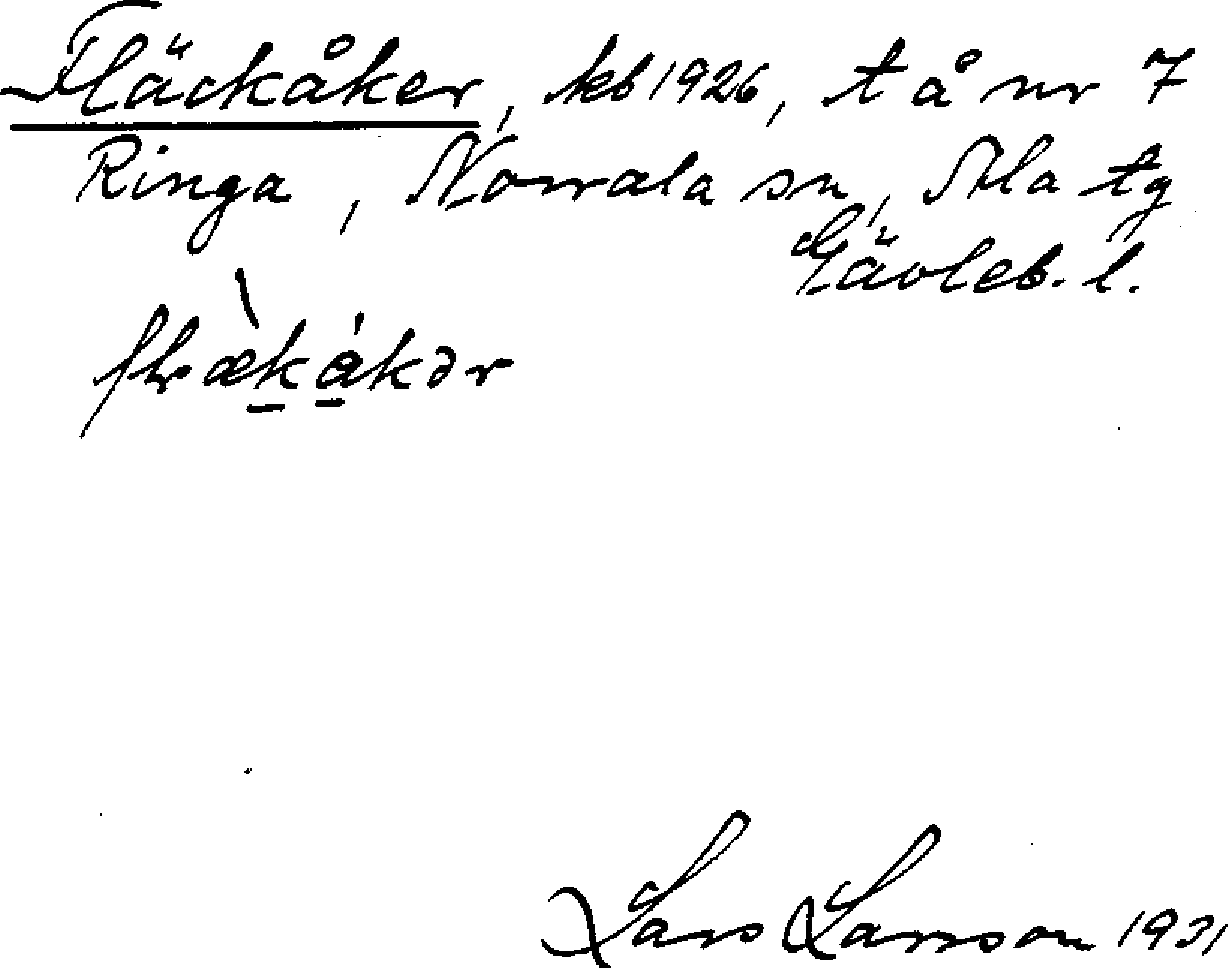 Fläckåker, kb 1926, t å nr 7
Ringa, Norrala sn, Ala tg
Gävleb. l.
Lars Larsson 1931